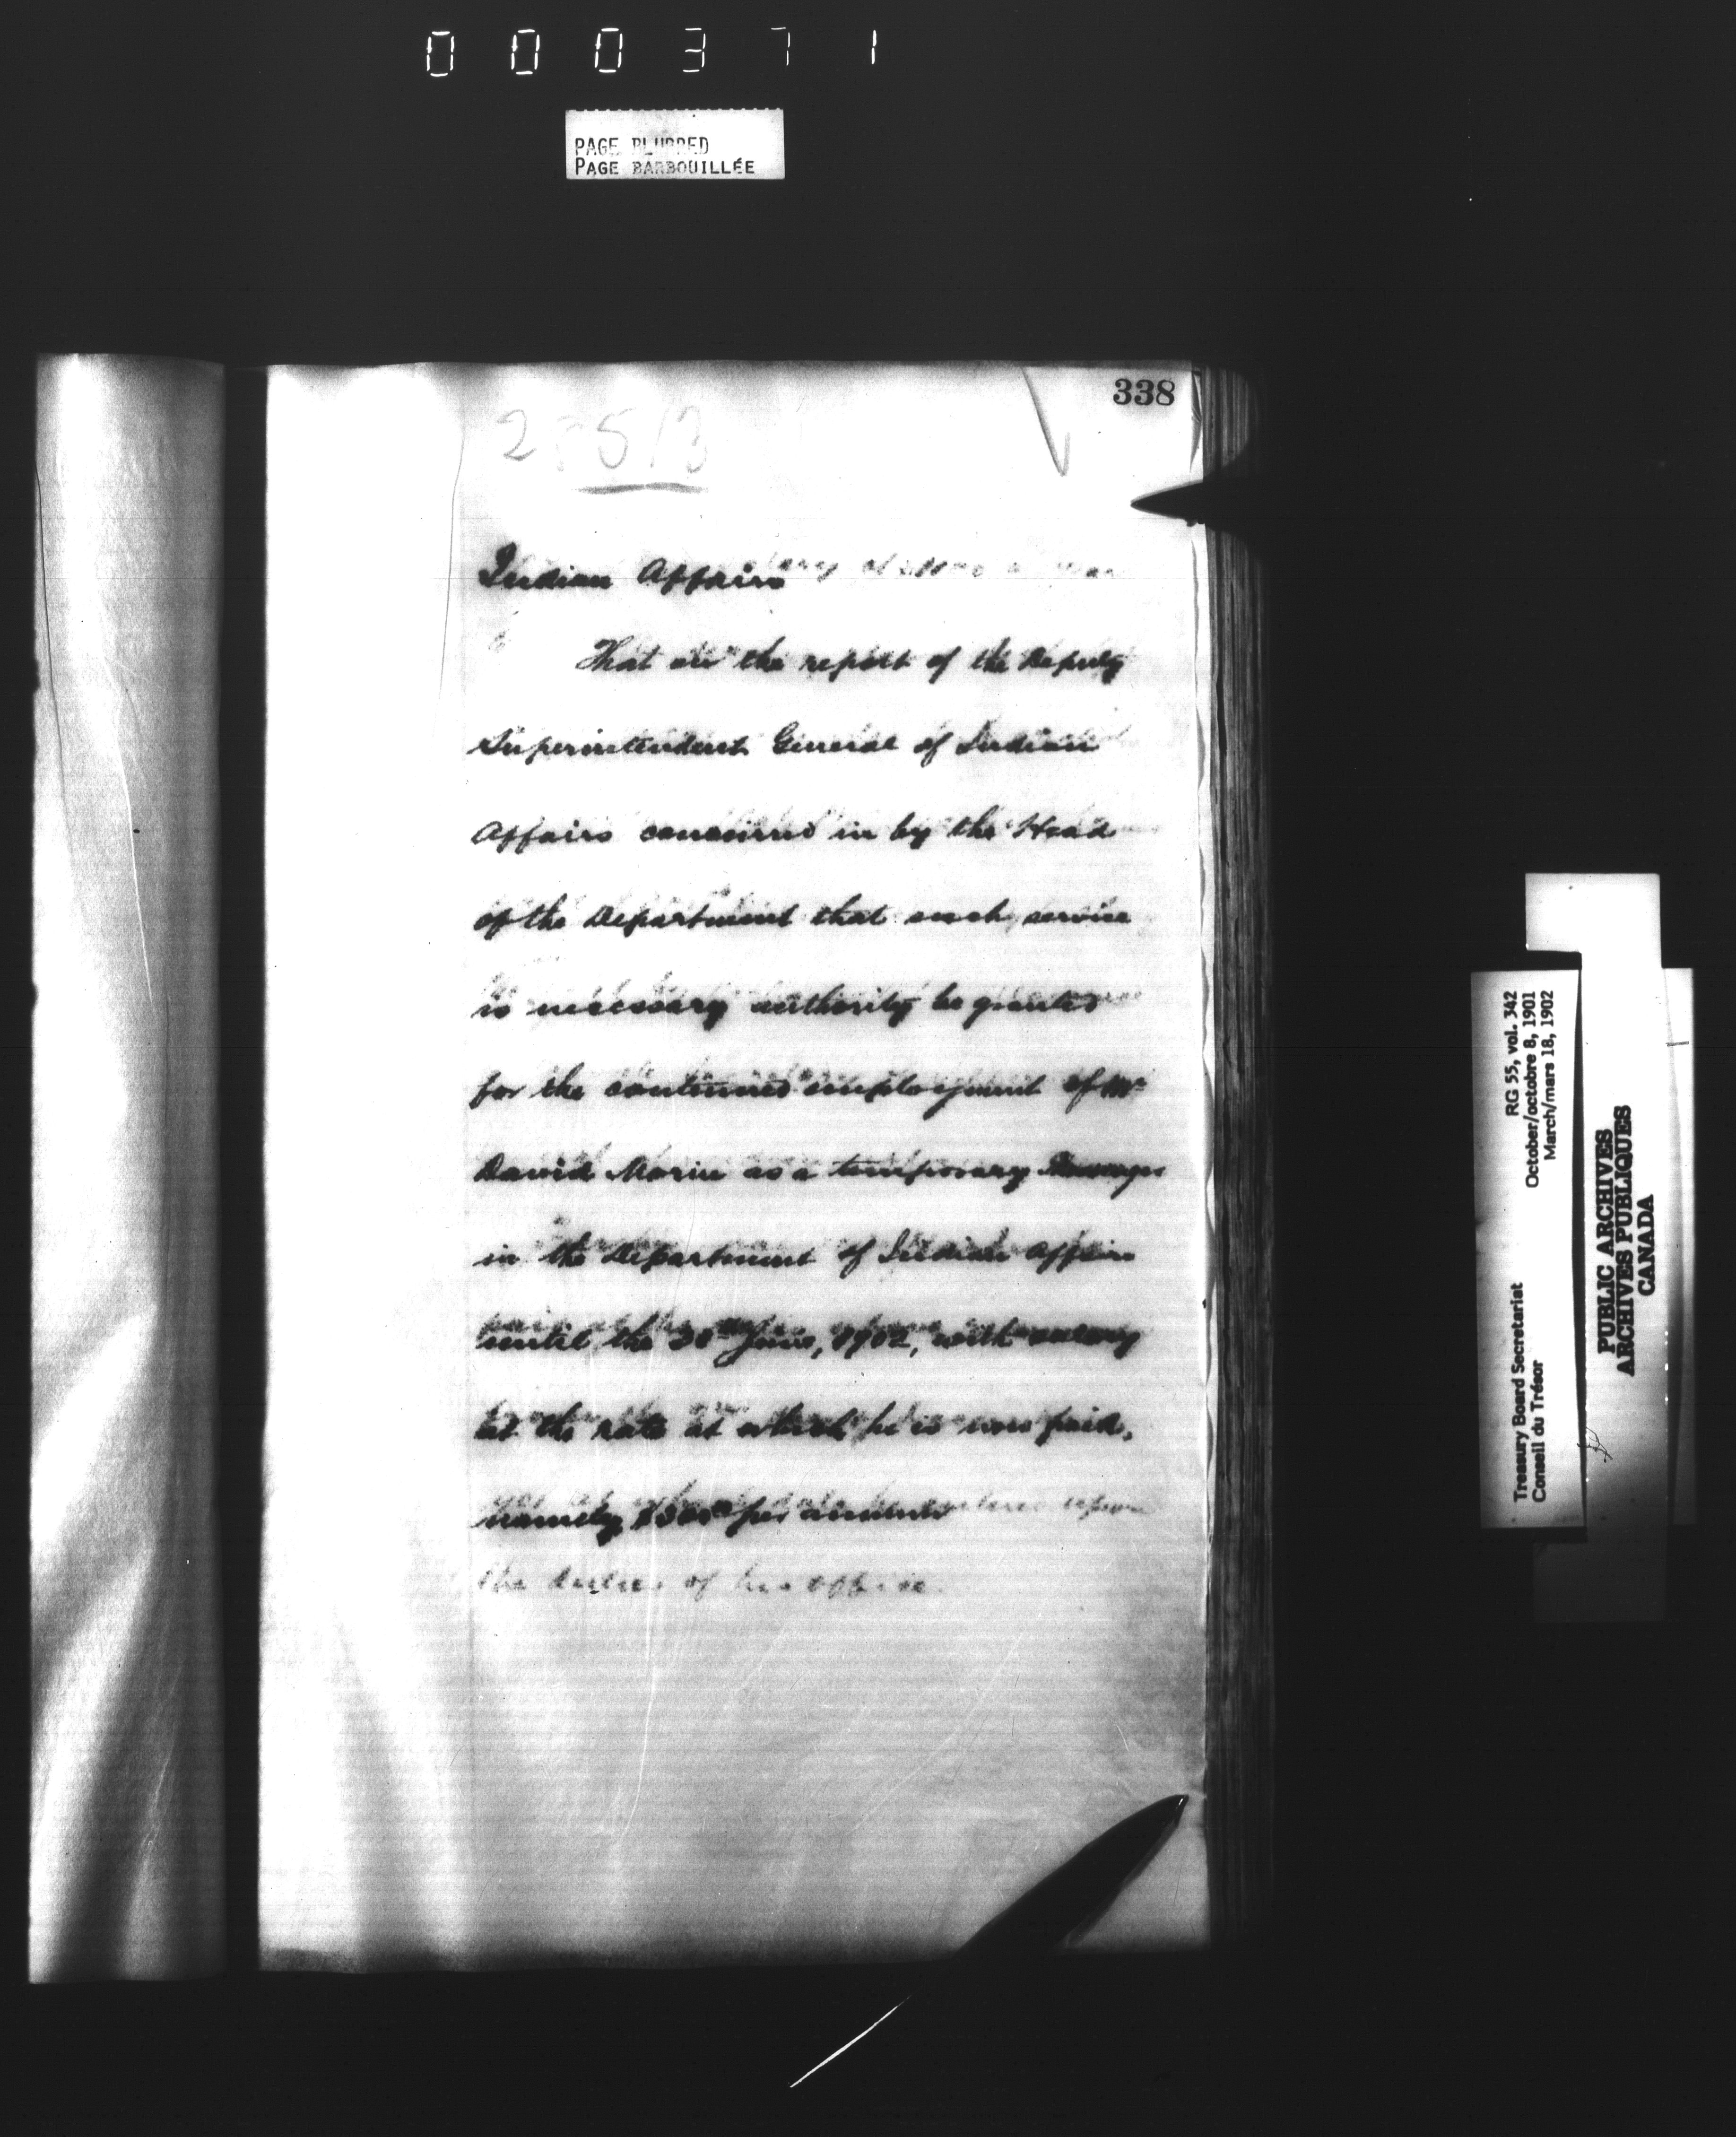 000371
PAGE BLURRED
PAGE BARBOUILLÉE
338
Indian Affairs
That on the report of the Deputy
Superintendent General of Indian
Affairs concurred in by the Head
of the Department that such service
is necessary authority be granted
for the continued employment of Mr
David Morin as a temporary Messenger
in the Department of Indian Affairs
until the 30th June, 1902, with salary
at the rate at which he is now paid,
namely per annum
the duties of his office.
RG 55, vol. 342
October/octobre 8, 1901
March/mars 18, 1902
Treasury Board Secretariat
Conseil du Trésor
PUBLIC ARCHIVES
ARCHIVES PUBLIQUES
CANADA